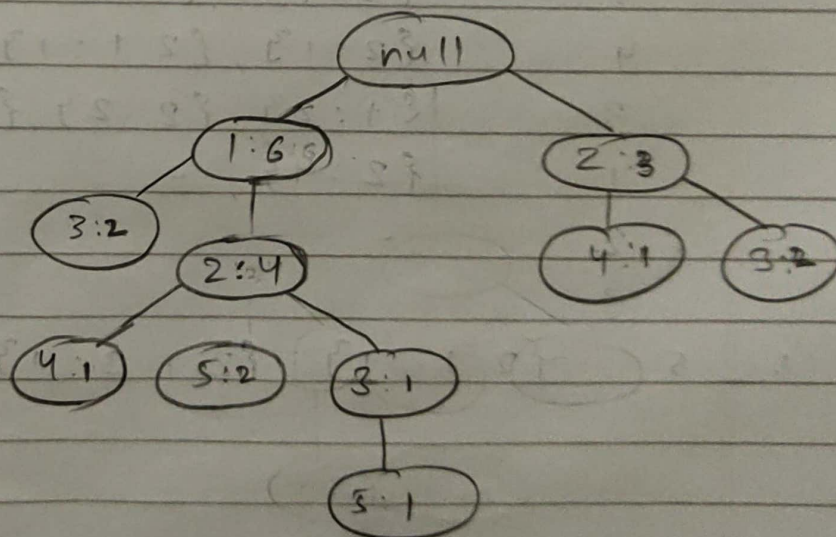 null
1:6
2:3
3:2
2:4
4:1
3:2
4:1
5:2
3:1
5:1